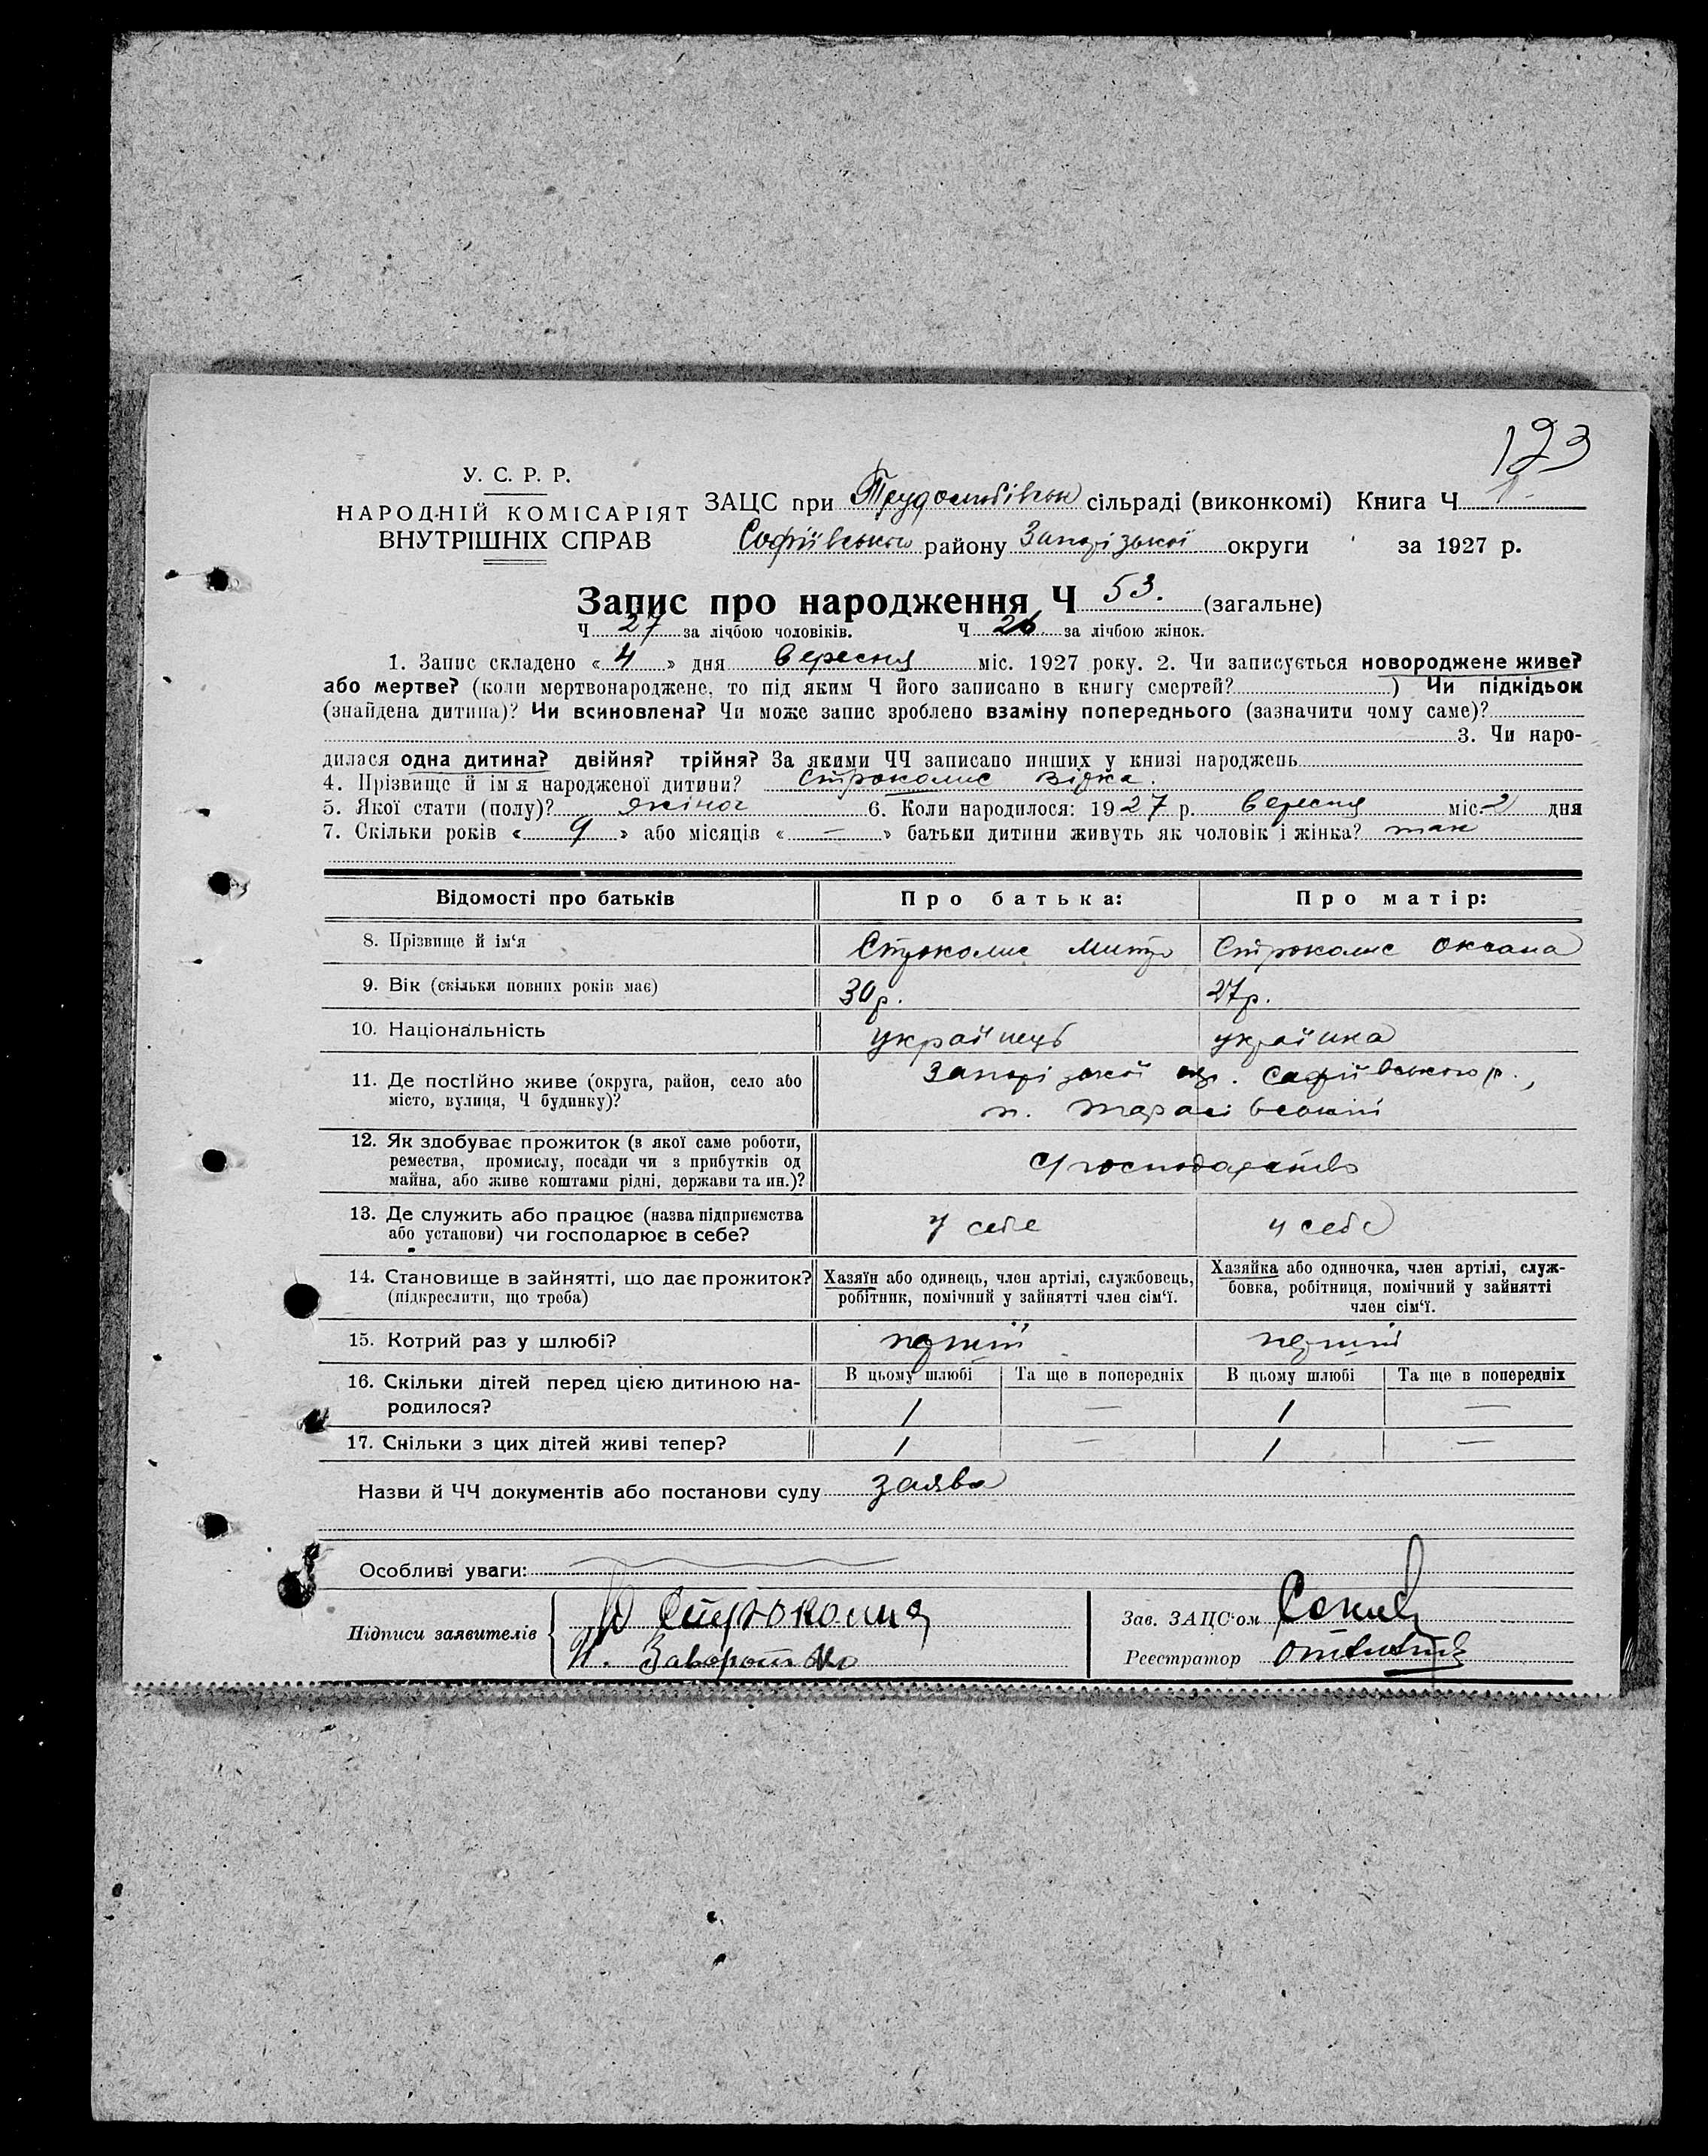 123
У. С. Р. Р.
НАРОДНІЙ КОМІСАРІЯТ
ВНУТРІШНІХ СПРАВ
ЗАЦС при сільраді (виконкомі) Книга Ч 1
Софіївського району Запорізької округи за 1927 р.
Запис про народження Ч 53. (загальне)
Ч 27 за лічбою чоловіків. Ч 26 за лічбою жінок.
1. Запис складено « 4 » дня вересня міс. 1927 року. 2. Чи записується новороджене живе?
або мертве? (коли мертвонароджене, то під яким Ч його записано в книгу смертей? ) Чи підкідьок
(знайдена дитина)? Чи всиновлена? Чи може запис зроблено взаміну попереднього (зазначити чому саме)?
3. Чи наро-
дилася одна дитина? двійня? трійня? За якими ЧЧ записано инших у книзі народжень
4. Прізвище й ім'я народженої дитини? Строколис Відка.
5. Якої стати (полу)? жіноч 6. Коли народилося: 1927 р. вересня міс. 2 дня
7. Скільки років « 9 » або місяців « — » батьки дитини живуть як чоловік і жінка? так
Відомості про батьків
Про батька:
Про матір:
8. Прізвище й ім'я
Строколис Митро
Строколис Оксана
9. Вік (скільки повних років має)
30 р.
27 р.
10. Національність
українець
українка
11. Де постійно живе (округа, район, село або
місто, вулиця, Ч будинку)?
Запорізької окр. Софіївського р.,
12. Як здобуває прожиток (в якої саме роботи,
ремества, промислу, посади чи з прибутків од
майна, або живе коштами рідні, держави та ин.)?
с/господарство
13. Де служить або працює (назва підприємства
або установи) чи господарює в себе?
у себе
у себе
14. Становище в зайнятті, що дає прожиток?
(підкреслити, що треба)
Хазяїн або одинець, член артілі, службовець,
робітник, помічний у зайнятті член сім'ї.
Хазяйка або одиночка, член артілі, служ-
бовка, робітниця, помічний у зайнятті
член сім'ї.
15. Котрий раз у шлюбі?
перший
перший
16. Скільки дітей перед цією дитиною на-
родилося?
В цьому шлюбі
Та ще в попередніх
В цьому шлюбі
Та ще в попередніх
1 — 1 —
17. Скільки з цих дітей живі тепер?
1 — 1 —
Назви й ЧЧ документів або постанови суду заява
Особливі уваги:
Підписи заявителів
Зав. ЗАЦС'ом
Реєстратор